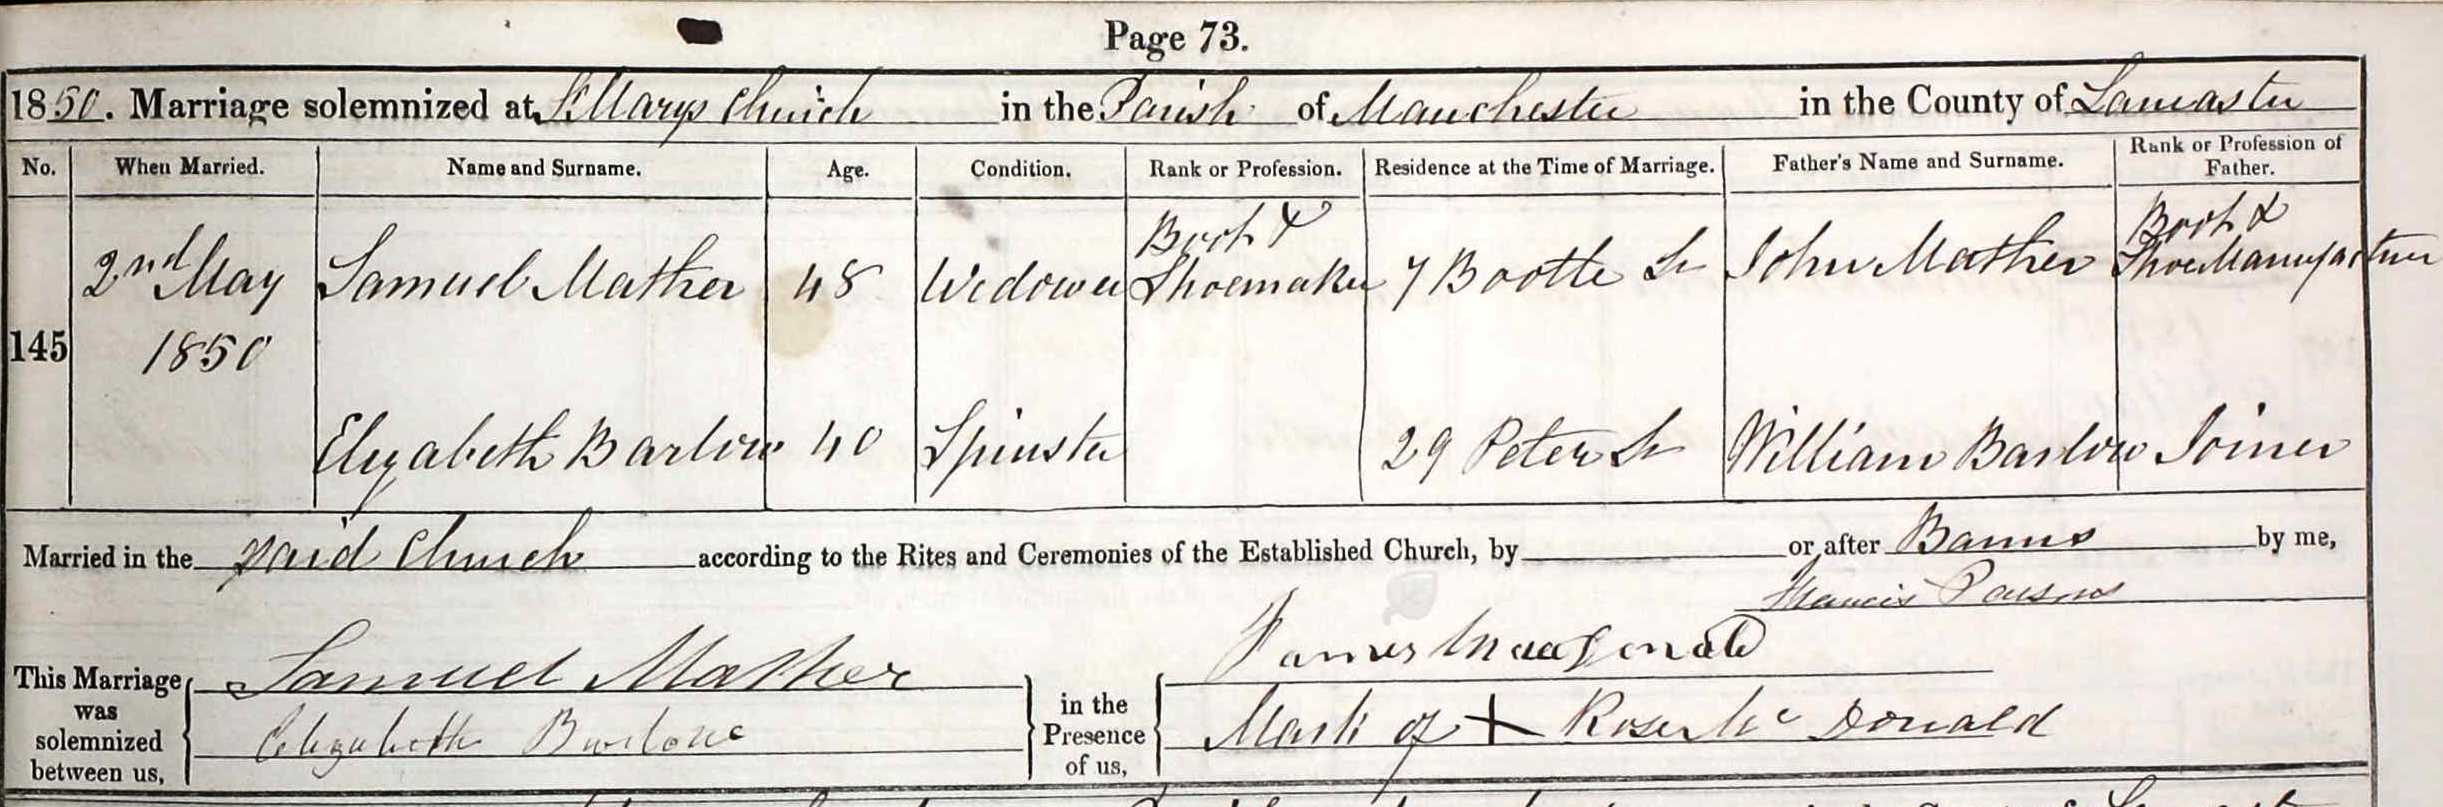 Page 73.
1850. Marriage solemnized at St Marys Church in the Parish of Manchester in the County of Lancaster
No. When Married. Name and Surname. Age. Condition. Rank or Profession. Residence at the Time of Marriage. Father's Name and Surname. Rank or Profession of Father.
145
2nd May
1850
Samuel Mather 48 Widower Boot & Shoemaker 7 Bootle St John Mather Boot & Shoe Manufacturer
Elizabeth Barlow 40 Spinster 29 Peter St William Barlow Joiner
Married in the said Church according to the Rites and Ceremonies of the Established Church, by or after Banns by me,
Francis Parsons
This Marriage was solemnized between us,
Samuel Mather
Elizabeth Barlow
in the Presence of us,
James MacDonald
Mark of + Rose Mc Donald